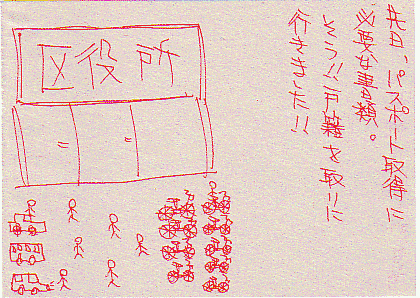 先日、パスポート取得に
必要な書類。
そう!!戸籍を取りに
行きました!!
区役所